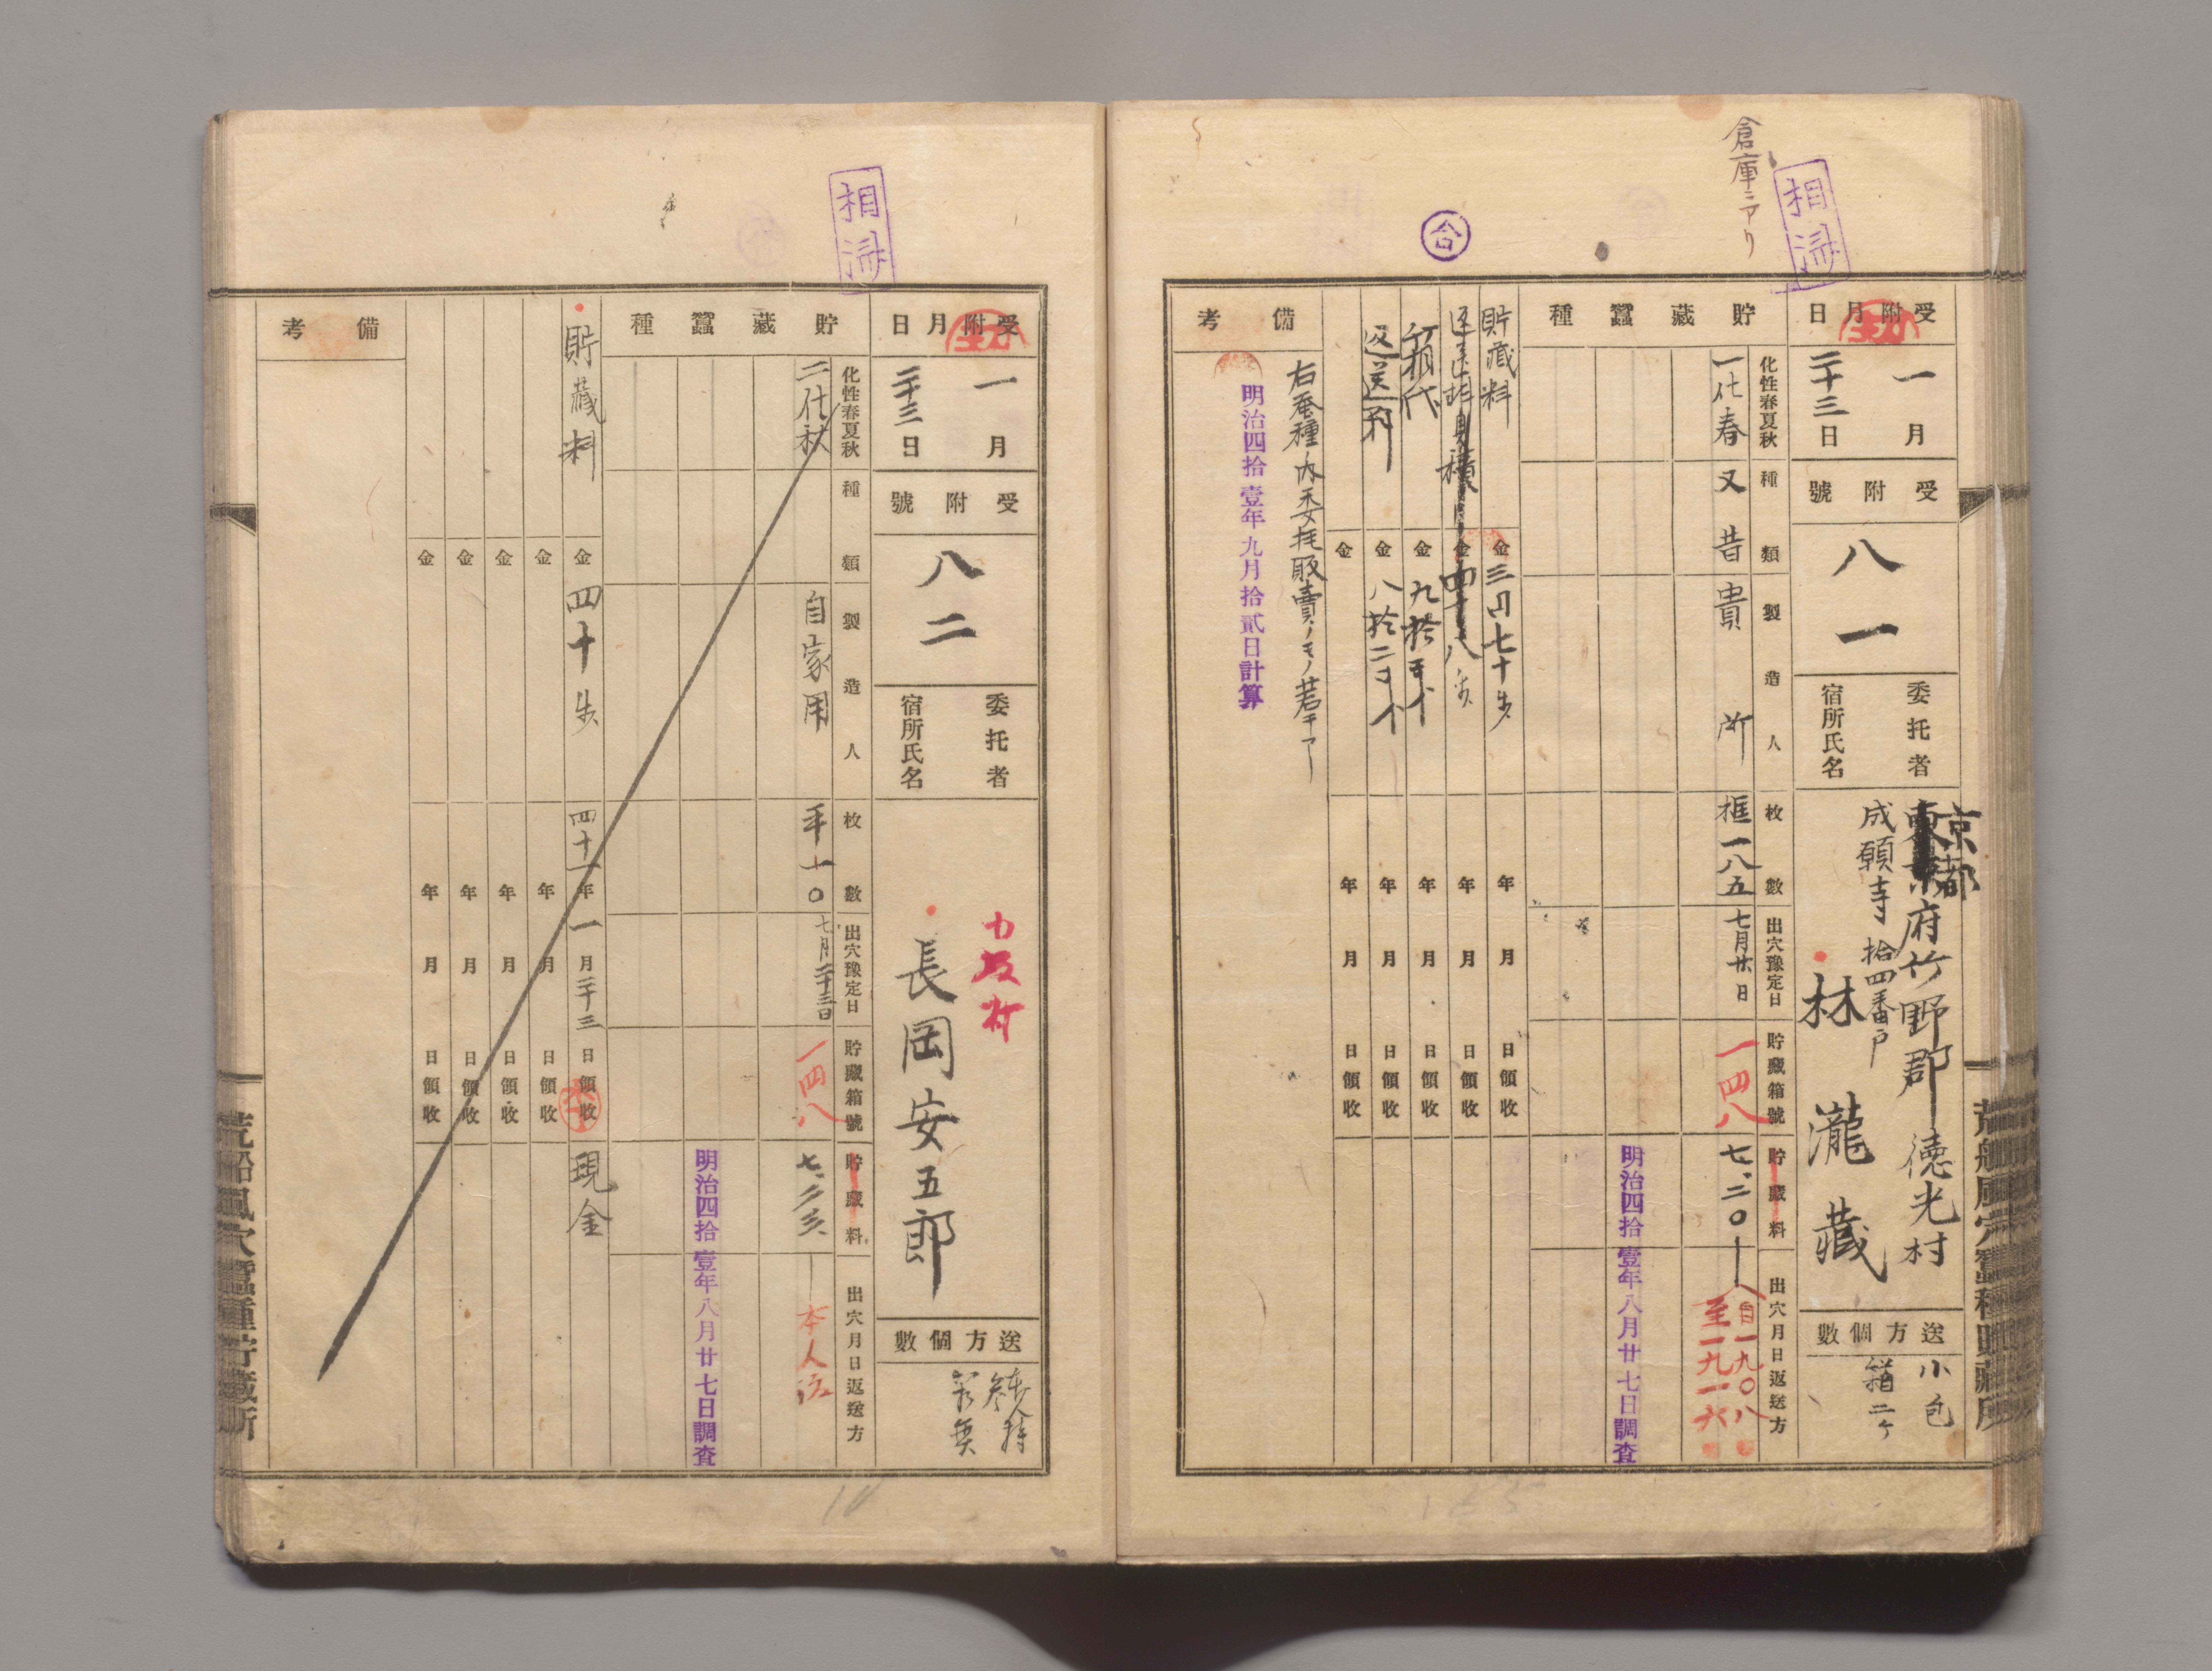 倉庫ニアリ
相済
合
受附月日
一月
二十三日
受附號
八一
委托者
宿所氏名
京都
府竹野郡徳光村
成願寺拾四番戸
林瀧藏
送方個數
小包
箱二ケ
貯藏蠶種
化性春夏秋
種類
製造人
枚數
出穴豫定日
貯藏箱號
貯藏料
出穴月日返送方
一化春
又昔
貴所
框一八五
七月廿日
一四八
七、二〇
自一九〇八
至一九一六
明治四拾壹年八月廿七日調査
貯藏料
金三円七十戋
年月日領收
金四十八戋
年月日領收
箱代
金九拾
年月日領收
返送料
金八拾二
年月日領收
金
年月日領收
備考
右蚕種ノ内委托販賣ノモノ若干アリ
明治四拾壹年九月拾貳日計算
荒船風穴蠶種貯藏所
相済
受附月日
一月
二十三日
受附號
八二
委托者
宿所氏名
長岡安五郎
送方個數
貯藏蠶種
化性春夏秋
種類
製造人
枚數
出穴豫定日
貯藏箱號
貯藏料
出穴月日返送方
二化秋
自家用
平一〇
七月二十三日
一四八
本人渡
明治四拾壹年八月廿七日調査
貯藏料
金四十戋
四十一年一月二十三日領收
現金
金
年月日領收
金
年月日領收
金
年月日領收
金
年月日領收
備考
荒船風穴蠶種貯藏所